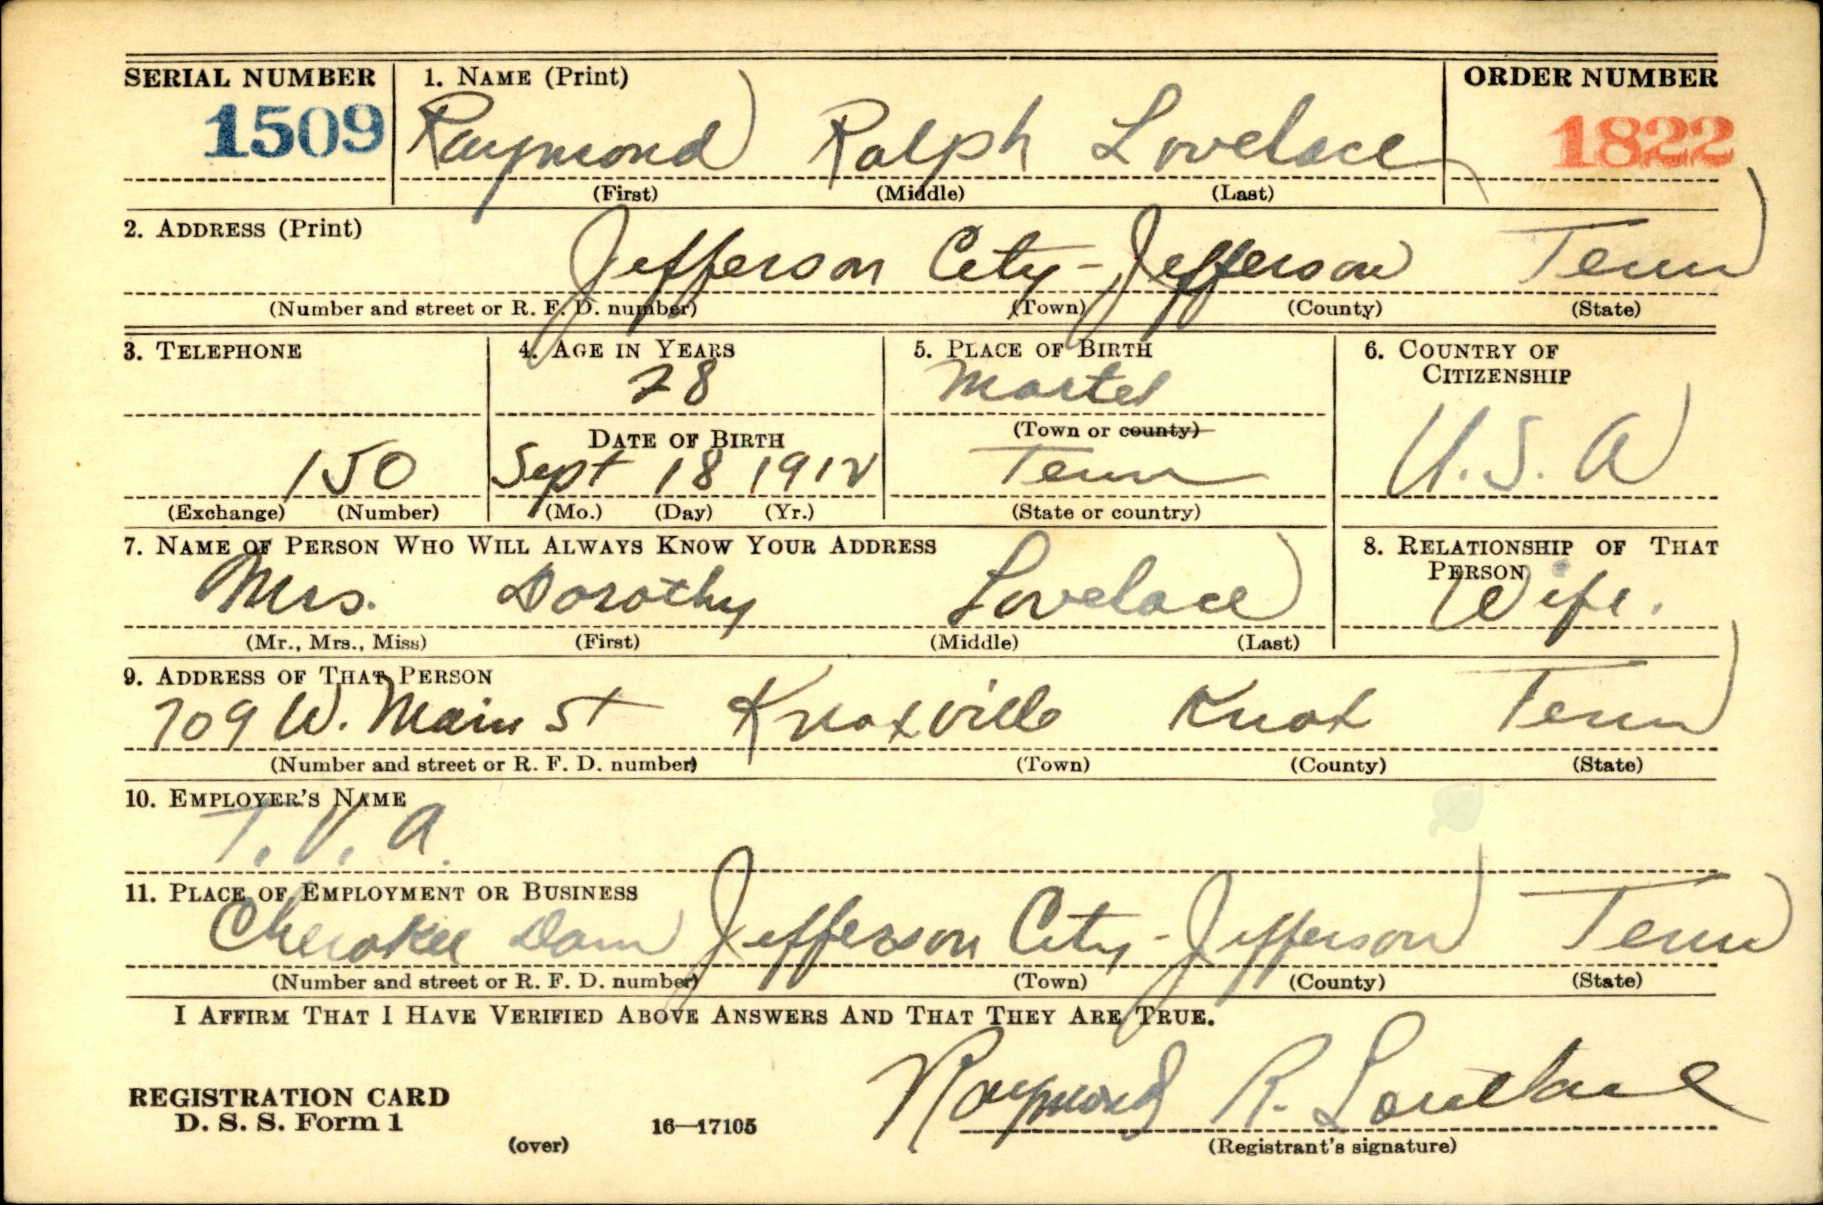 SERIAL NUMBER 1. NAME (Print) ORDER NUMBER
1509 Raymond Ralph Lovelace 1822
(First) (Middle) (Last)
2. ADDRESS (Print)
Jefferson City - Jefferson Tenn
(Number and street or R. F. D. number) (Town) (County) (State)
3. TELEPHONE 4. AGE IN YEARS 5. PLACE OF BIRTH 6. COUNTRY OF CITIZENSHIP
28 Martel
DATE OF BIRTH (Town or county) U.S.A
150 Sept 18 1912 Tenn
(Exchange) (Number) (Mo.) (Day) (Yr.) (State or country)
7. NAME OF PERSON WHO WILL ALWAYS KNOW YOUR ADDRESS 8. RELATIONSHIP OF THAT PERSON
Mrs. Dorothy Lovelace Wife.
(Mr., Mrs., Miss) (First) (Middle) (Last)
9. ADDRESS OF THAT PERSON
709 W. Main St Knoxville Knox Tenn
(Number and street or R. F. D. number) (Town) (County) (State)
10. EMPLOYER'S NAME
T.V.A.
11. PLACE OF EMPLOYMENT OR BUSINESS
Cherokee Dam Jefferson City - Jefferson Tenn
(Number and street or R. F. D. number) (Town) (County) (State)
I AFFIRM THAT I HAVE VERIFIED ABOVE ANSWERS AND THAT THEY ARE TRUE.
Raymond R. Lovelace
REGISTRATION CARD
D. S. S. Form 1 16—17105
(over) (Registrant's signature)